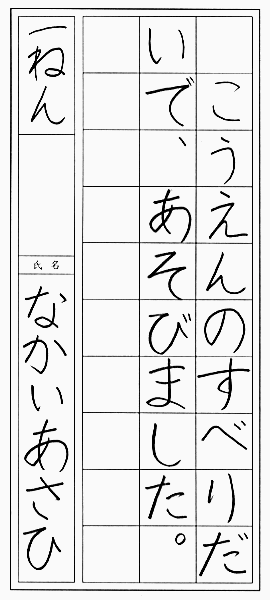 こうえんのすべりだ
いで、あそびました。
一ねん
氏名
なかいあさひ